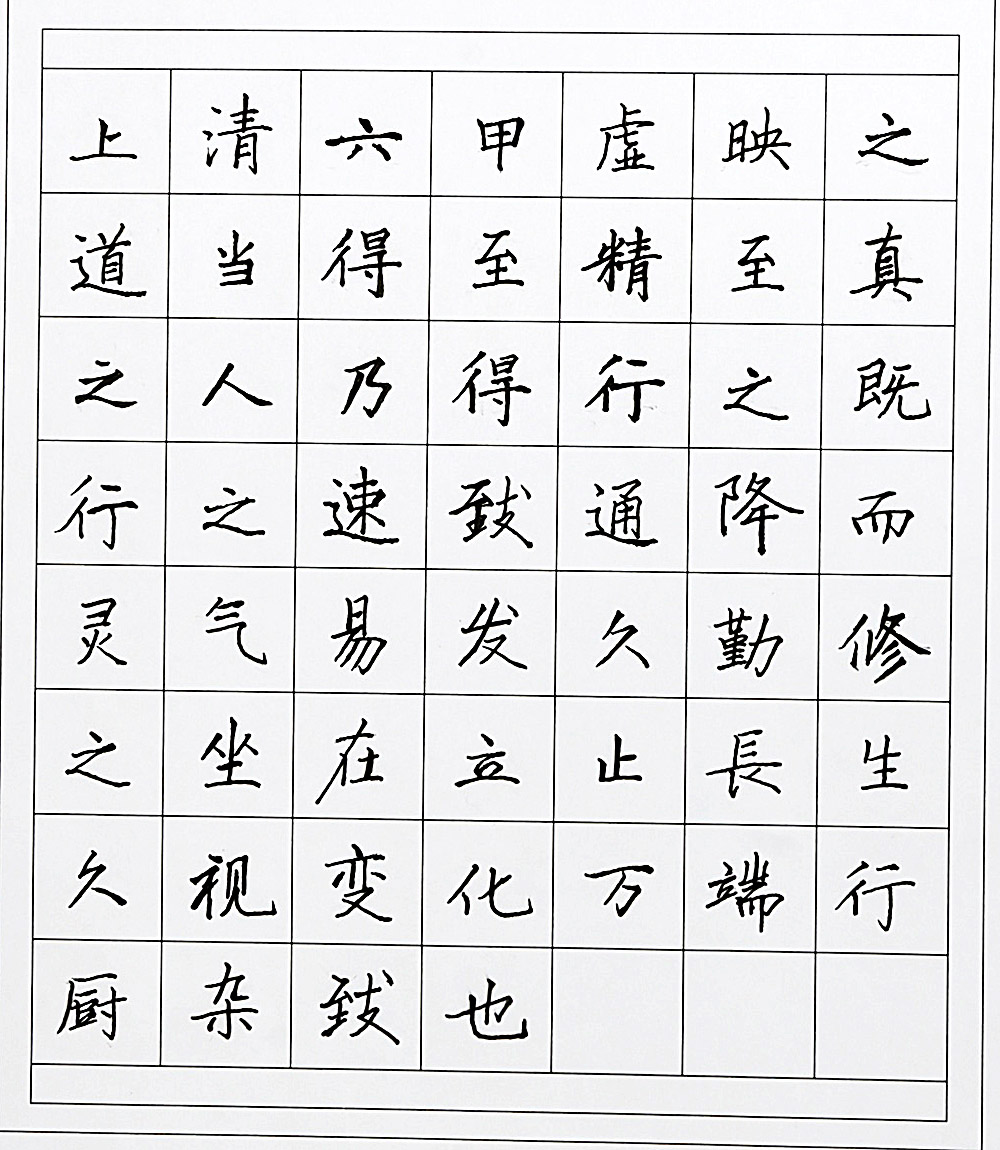 上清六甲虚映之
道当得至精至真
之人乃得行之既
行之速致通降而
灵气易发久勤修
之坐在立止長生
久视变化万端行
厨杂致也